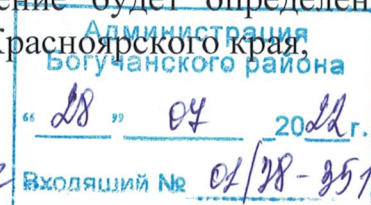 ение будет определен
Красноярского края,
Администрация
Богучанского района
“ 28 ” 07 2022 г.
Входящий № 01/38-351